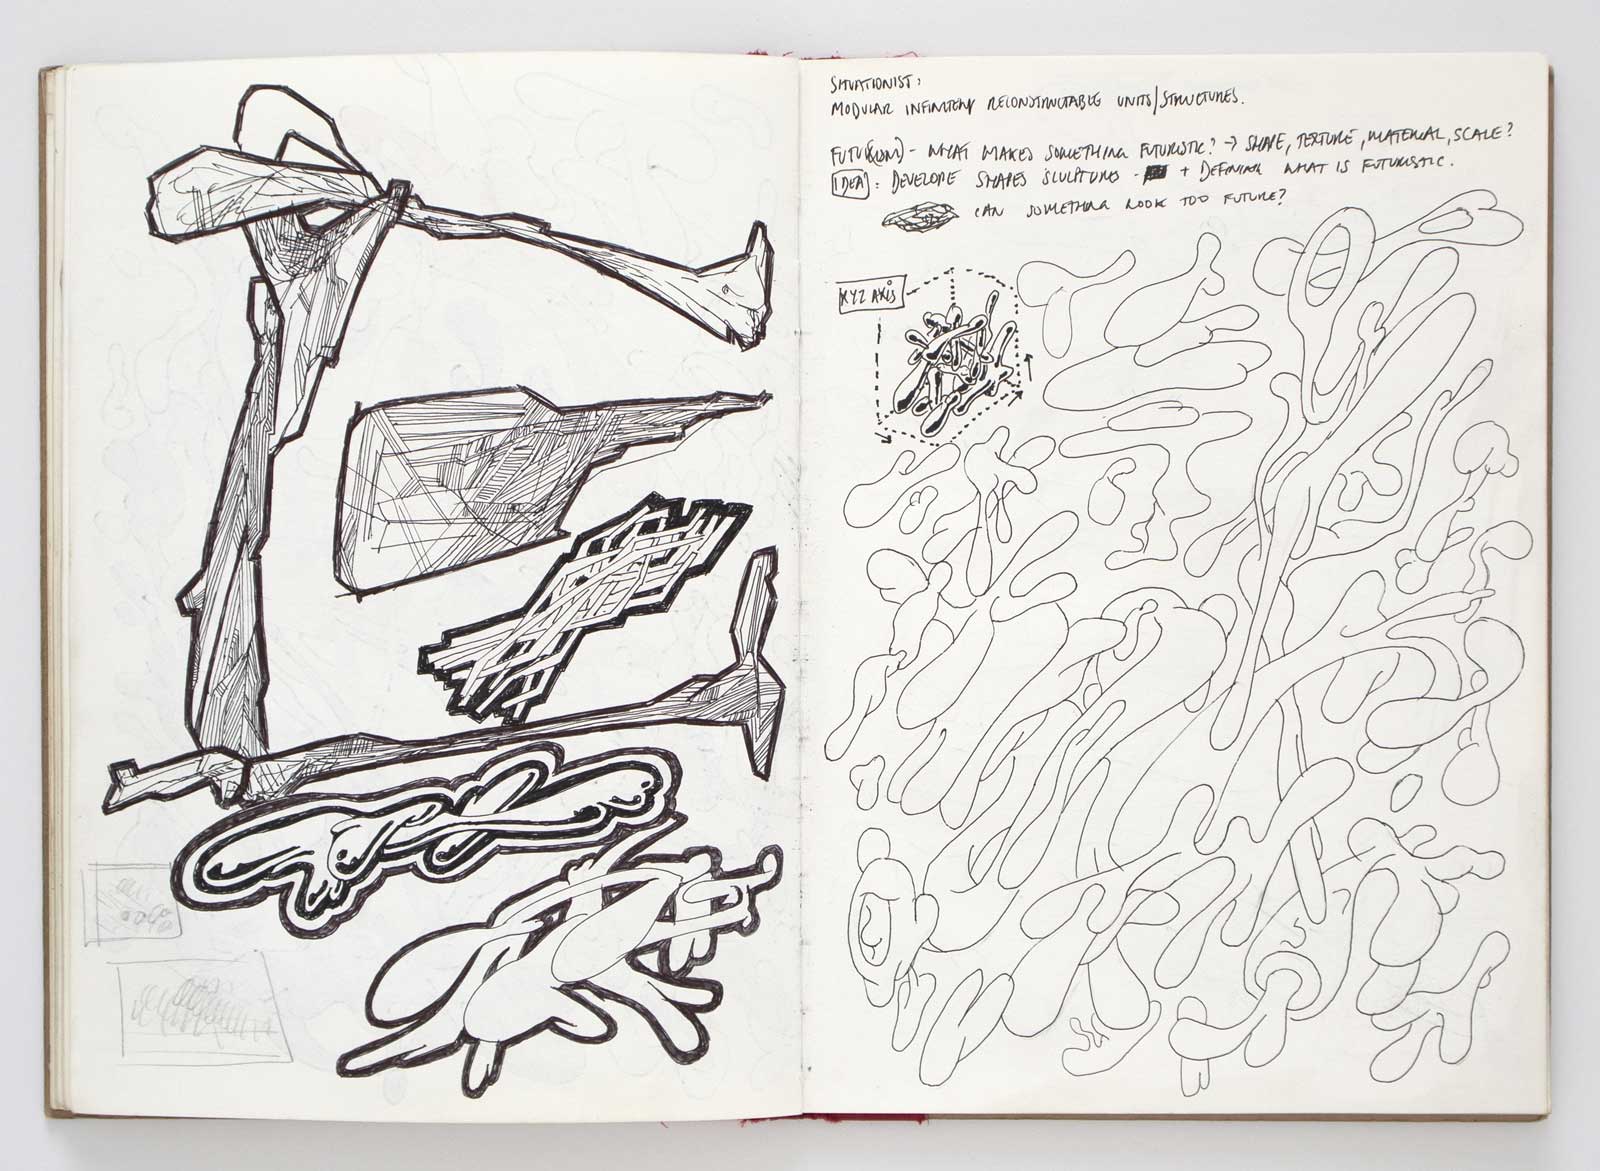 SITUATIONIST:
MODULAR INFINITELY RECONSTRUCTABLE UNITS/STRUCTURES.
FUTU(RISM) - WHAT MAKES SOMETHING FUTURISTIC? → SHAPE, TEXTURE, MATERIAL, SCALE?
IDEA: DEVELOPE SHAPES SCULPTURES - + DEFINING WHAT IS FUTURISTIC.
CAN SOMETHING LOOK TOO FUTURE?
XYZ AXIS